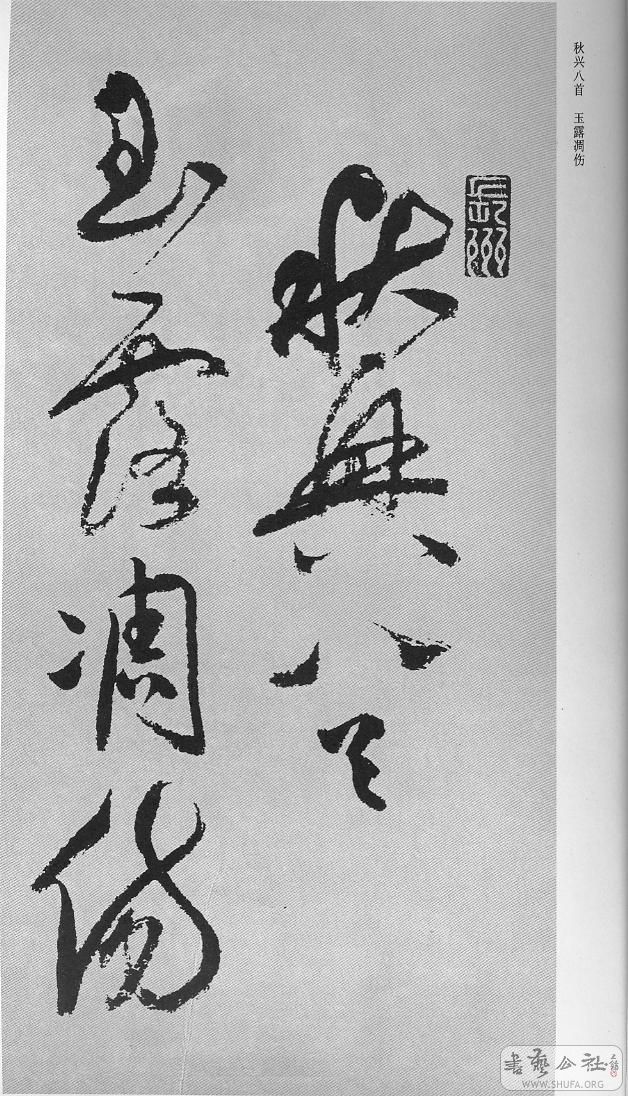 秋兴八首　玉露凋伤
長洲
秋興八首
玉露凋傷
書藝公社
WWW.SHUFA.ORG